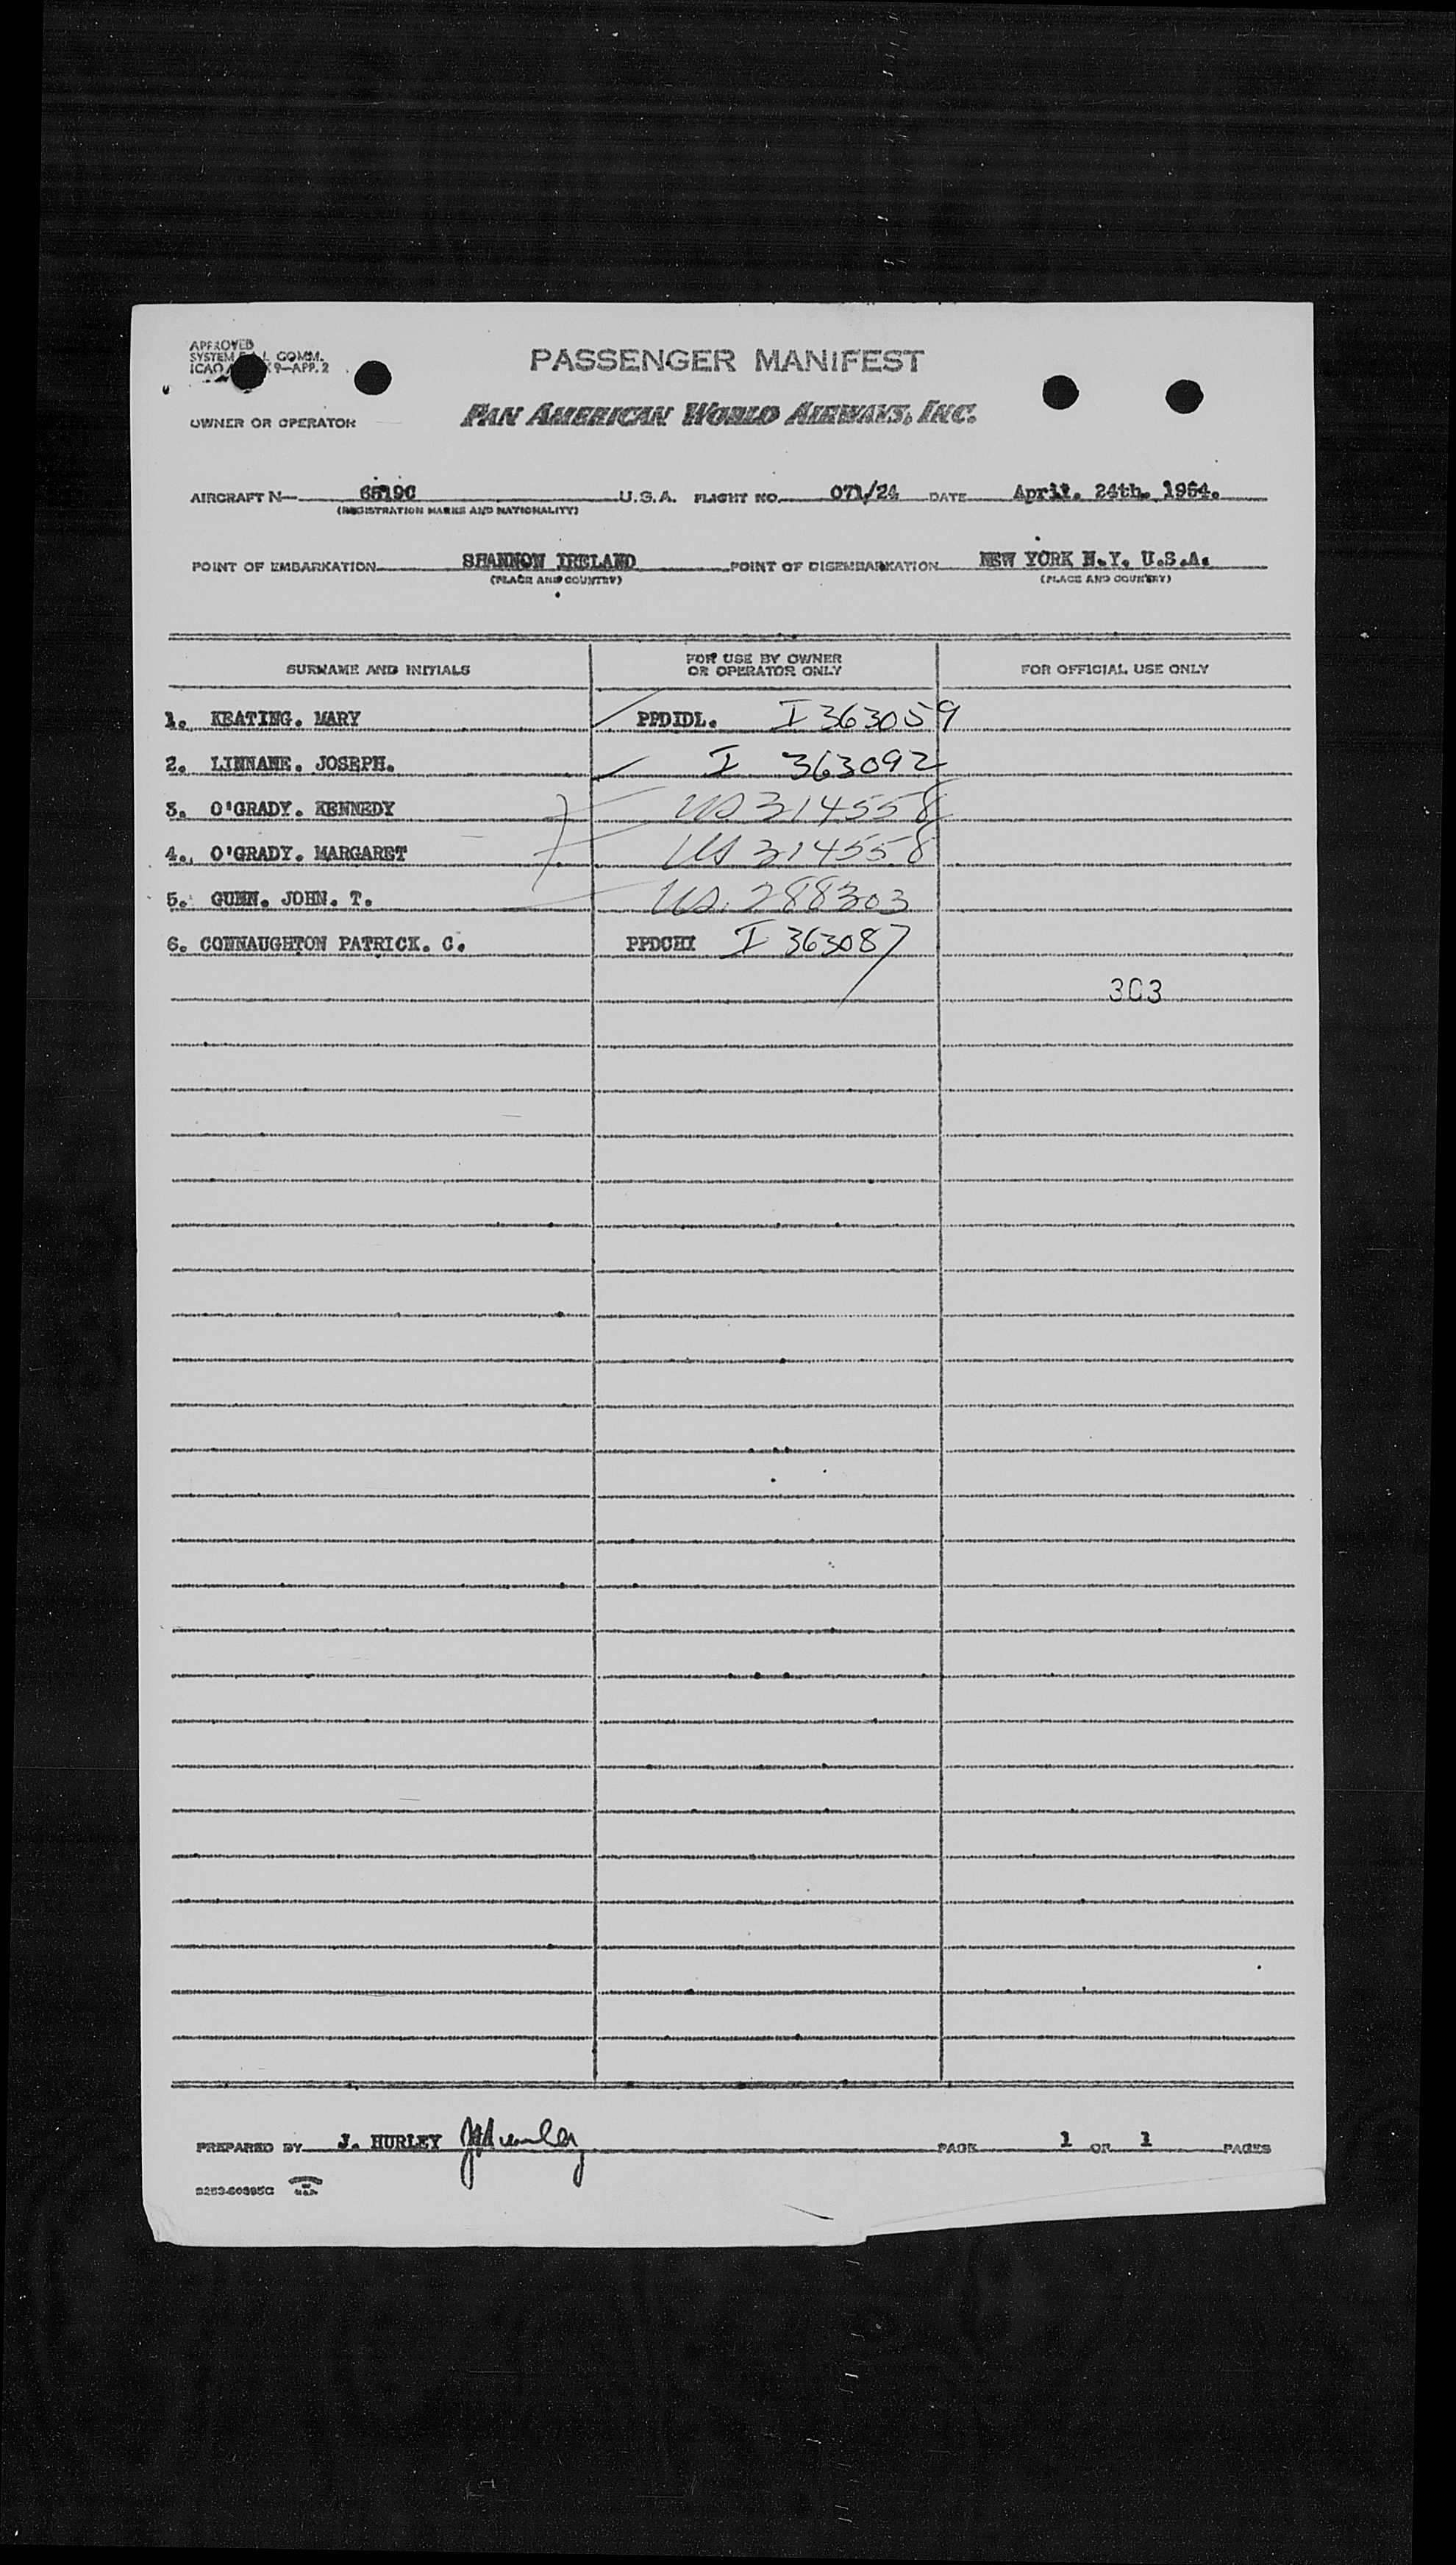 APPROVED
SYSTEM COMM.
ICAO 9—APP. 2
PASSENGER MANIFEST
OWNER OR OPERATOR
PAN AMERICAN WORLD AIRWAYS, INC.
AIRCRAFT N— 6519C U.S.A. FLIGHT NO. 071/24 DATE April. 24th. 1954.
(REGISTRATION MARKS AND NATIONALITY)
POINT OF EMBARKATION SHANNON IRELAND POINT OF DISEMBARKATION NEW YORK N.Y. U.S.A.
(PLACE AND COUNTRY) (PLACE AND COUNTRY)
SURNAME AND INITIALS
FOR USE BY OWNER
OR OPERATOR ONLY
FOR OFFICIAL USE ONLY
1. KEATING. MARY PPDIDL. I 363059
2. LINNANE. JOSEPH. I 363092
3. O'GRADY. KENNEDY US 314558
4. O'GRADY. MARGARET US 314558
5. GUNN. JOHN. T. US. 288303
6. CONNAUGHTON PATRICK. C. PPDCHI I 363087
303
PREPARED BY J. HURLEY JHurley PAGE 1 OF 1 PAGES